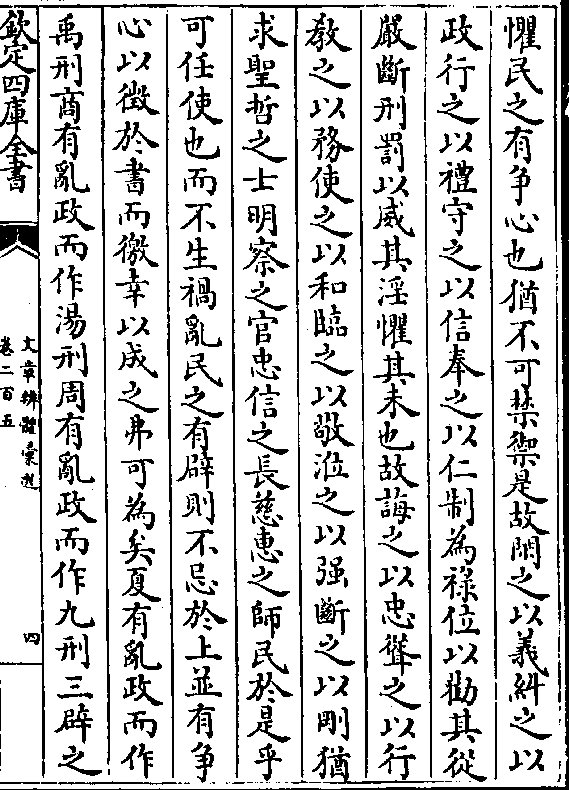 懼民之有争心也猶不可禁禦是故閑之以義糾之以
政行之以禮守之以信奉之以仁制為祿位以勸其從
嚴斷刑罰以威其淫懼其未也故誨之以忠聳之以行
敎之以務使之以和臨之以敬涖之以强斷之以剛猶
求聖哲之士明察之官忠信之長慈惠之師民於是乎
可任使也而不生禍亂民之有辟則不忌於上並有争
心以徵於書而徼幸以成之弗可為矣夏有亂政而作
禹刑商有亂政而作湯刑周有亂政而作九刑三辟之
欽定四庫全書
文章辨體彚選
卷二百五
四